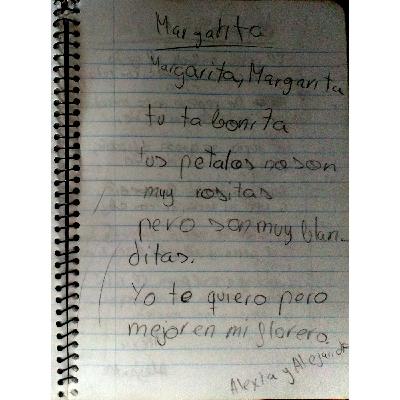 Margarita
Margarita, Margarita
tu ta bonita
tus petalos no son
muy rositas
pero son muy blan-
ditas.
Yo te quiero pero
mejor en mi florero.
Alexia y Alejandr